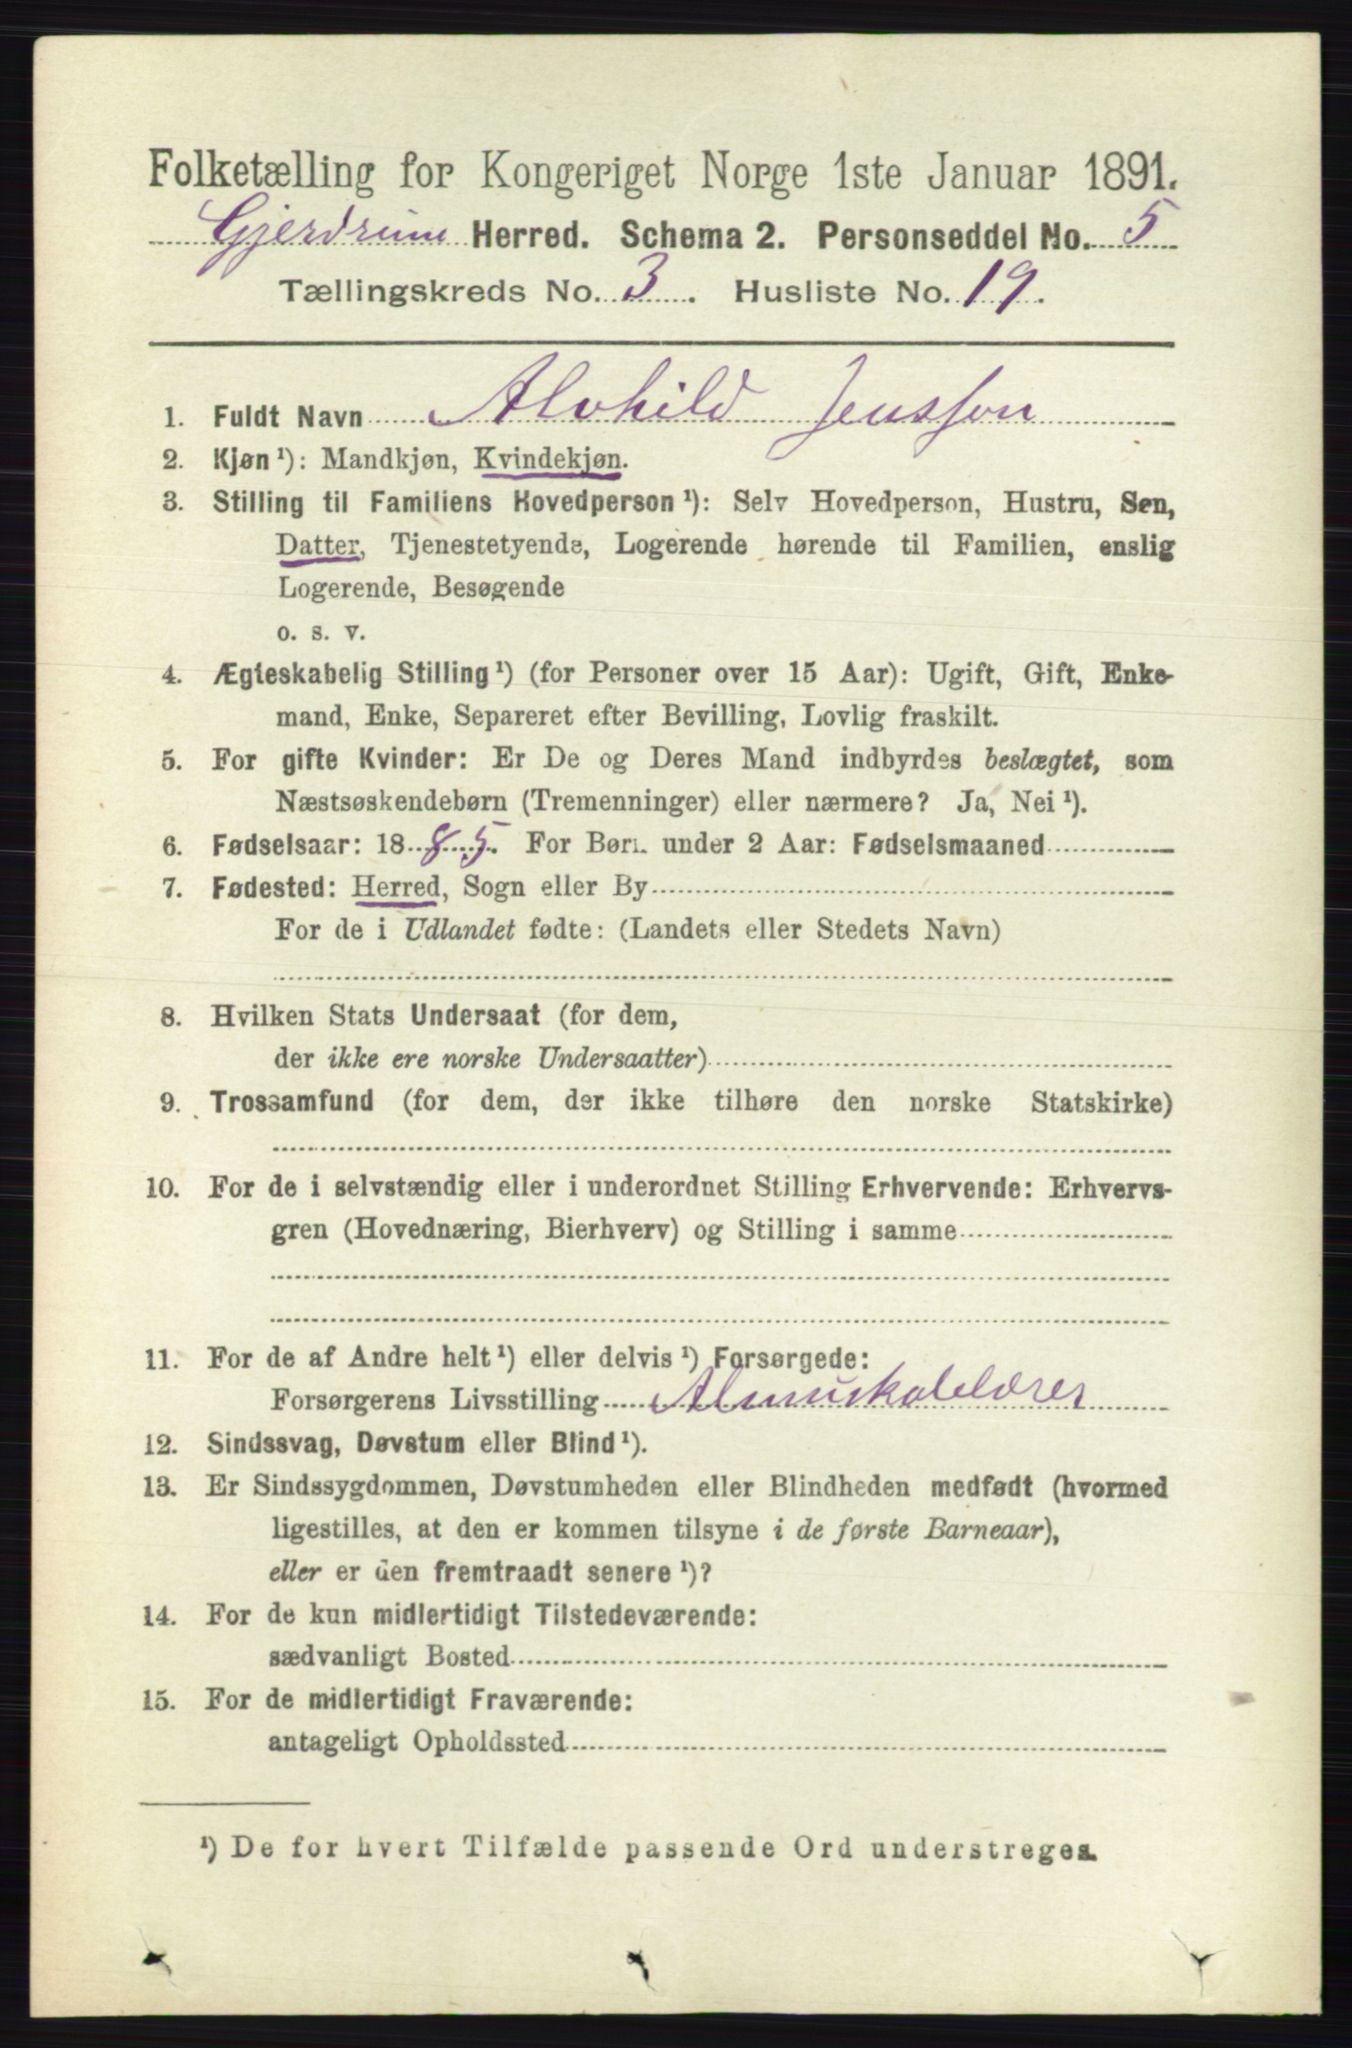 Folketælling for Kongeriget Norge 1ste Januar 1891.
Gjerdrum Herred. Schema 2. Personseddel No. 5
Tællingskreds No. 3. Husliste No. 19.
1. Fuldt Navn Alvhild Jensson
2. Kjøn¹): Mandkjøn, Kvindekjøn.
3. Stilling til Familiens Hovedperson¹): Selv Hovedperson, Hustru, Søn,
Datter, Tjenestetyende, Logerende hørende til Familien, enslig
Logerende, Besøgende
o. s. v.
4. Ægteskabelig Stilling¹) (for Personer over 15 Aar): Ugift, Gift, Enke-
mand, Enke, Separeret efter Bevilling, Lovlig fraskilt.
5. For gifte Kvinder: Er De og Deres Mand indbyrdes beslægtet, som
Næstsøskendebørn (Tremenninger) eller nærmere? Ja, Nei¹).
6. Fødselsaar: 1885. For Børn under 2 Aar: Fødselsmaaned
7. Fødested: Herred, Sogn eller By
For de i Udlandet fødte: (Landets eller Stedets Navn)
8. Hvilken Stats Undersaat (for dem,
der ikke ere norske Undersaatter)
9. Trossamfund (for dem, der ikke tilhøre den norske Statskirke)
10. For de i selvstændig eller i underordnet Stilling Erhvervende: Erhvervs-
gren (Hovednæring, Bierhverv) og Stilling i samme
11. For de af Andre helt¹) eller delvis¹) Forsørgede:
Forsørgerens Livsstilling Almuskolelærer
12. Sindssvag, Døvstum eller Blind¹).
13. Er Sindssygdommen, Døvstumheden eller Blindheden medfødt (hvormed
ligestilles, at den er kommen tilsyne i de første Barneaar),
eller er den fremtraadt senere¹)?
14. For de kun midlertidigt Tilstedeværende:
sædvanligt Bosted
15. For de midlertidigt Fraværende:
antageligt Opholdssted
¹) De for hvert Tilfælde passende Ord understreges.